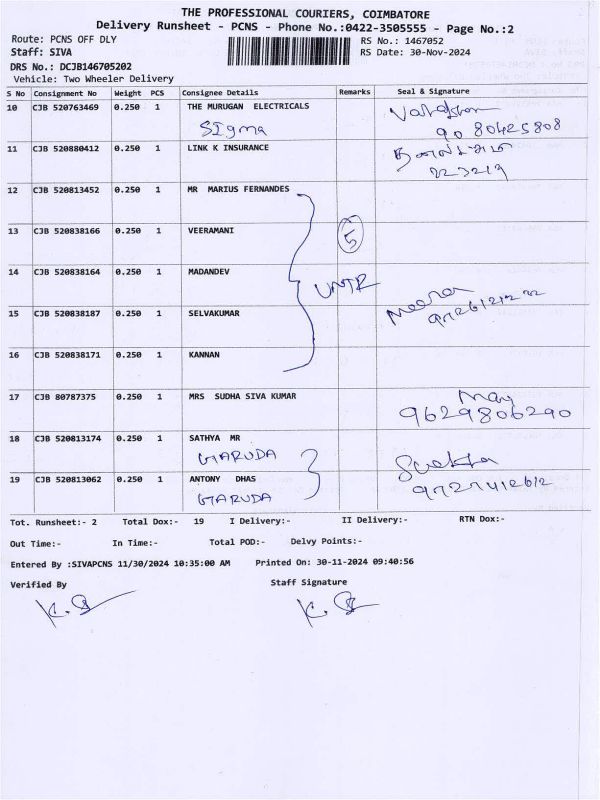 THE PROFESSIONAL COURIERS, COIMBATORE
Delivery Runsheet - PCNS - Phone No.:0422-3505555 - Page No.:2
Route: PCNS OFF DLY
RS No.: 1467052
Staff: SIVA
RS Date: 30-Nov-2024
DRS No.: DCJB146705202
Vehicle: Two Wheeler Delivery
S No Consignment No Weight PCS Consignee Details Remarks Seal & Signature
10 CJB 520763469 0.250 1 THE MURUGAN ELECTRICALS
Sigma
90 80425808
11 CJB 520880412 0.250 1 LINK K INSURANCE
223219
12 CJB 520813452 0.250 1 MR MARIUS FERNANDES
13 CJB 520838166 0.250 1 VEERAMANI 5
14 CJB 520838164 0.250 1 MADANDEV
UMTR
15 CJB 520838187 0.250 1 SELVAKUMAR
16 CJB 520838171 0.250 1 KANNAN
17 CJB 80787375 0.250 1 MRS SUDHA SIVA KUMAR May
9629806290
18 CJB 520813174 0.250 1 SATHYA MR
GARUDA
19 CJB 520813062 0.250 1 ANTONY DHAS
GARUDA
Tot. Runsheet:- 2 Total Dox:- 19 I Delivery:- II Delivery:- RTN Dox:-
Out Time:- In Time:- Total POD:- Delvy Points:-
Entered By :SIVAPCNS 11/30/2024 10:35:00 AM Printed On: 30-11-2024 09:40:56
Verified By Staff Signature